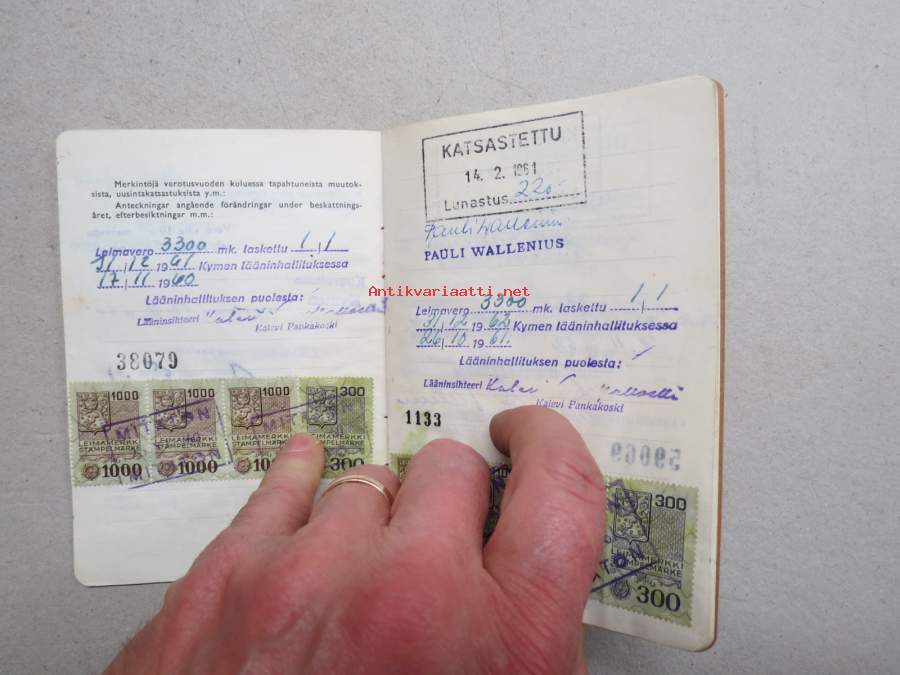 Merkintöjä verotusvuoden kuluessa tapahtuneista muutok-
sista, uusintakatsastuksista y.m.:
Anteckningar angående förändringar under beskattnings-
året, efterbesiktningar m.m.:
Leimavero 3300 mk. laskettu 1/1
31/12 1961 Kymen lääninhallituksessa
17/11 1960
Lääninhallituksen puolesta:
Lääninsihteeri Kalevi
Kalevi Pankakoski
38079
1000 1000 1000 300
MITÄTÖN
LEIMAMERKKI LEIMAMERKKI LEIMAMERKKI LEIMAMERKKI
STÄMPELMÄRKE STÄMPELMÄRKE STÄMPELMÄRKE
1000 1000 1000 300
KATSASTETTU
14. 2. 1961
Lunastus 220:-
Pauli Wallenius
PAULI WALLENIUS
Antikvariaatti.net
Leimavero 3300 mk. laskettu 1/1
31/12 1962 Kymen lääninhallituksessa
26/10 1961.
Lääninhallituksen puolesta:
Lääninsihteeri Kalevi
Kalevi Pankakoski
1133
59069
300
300